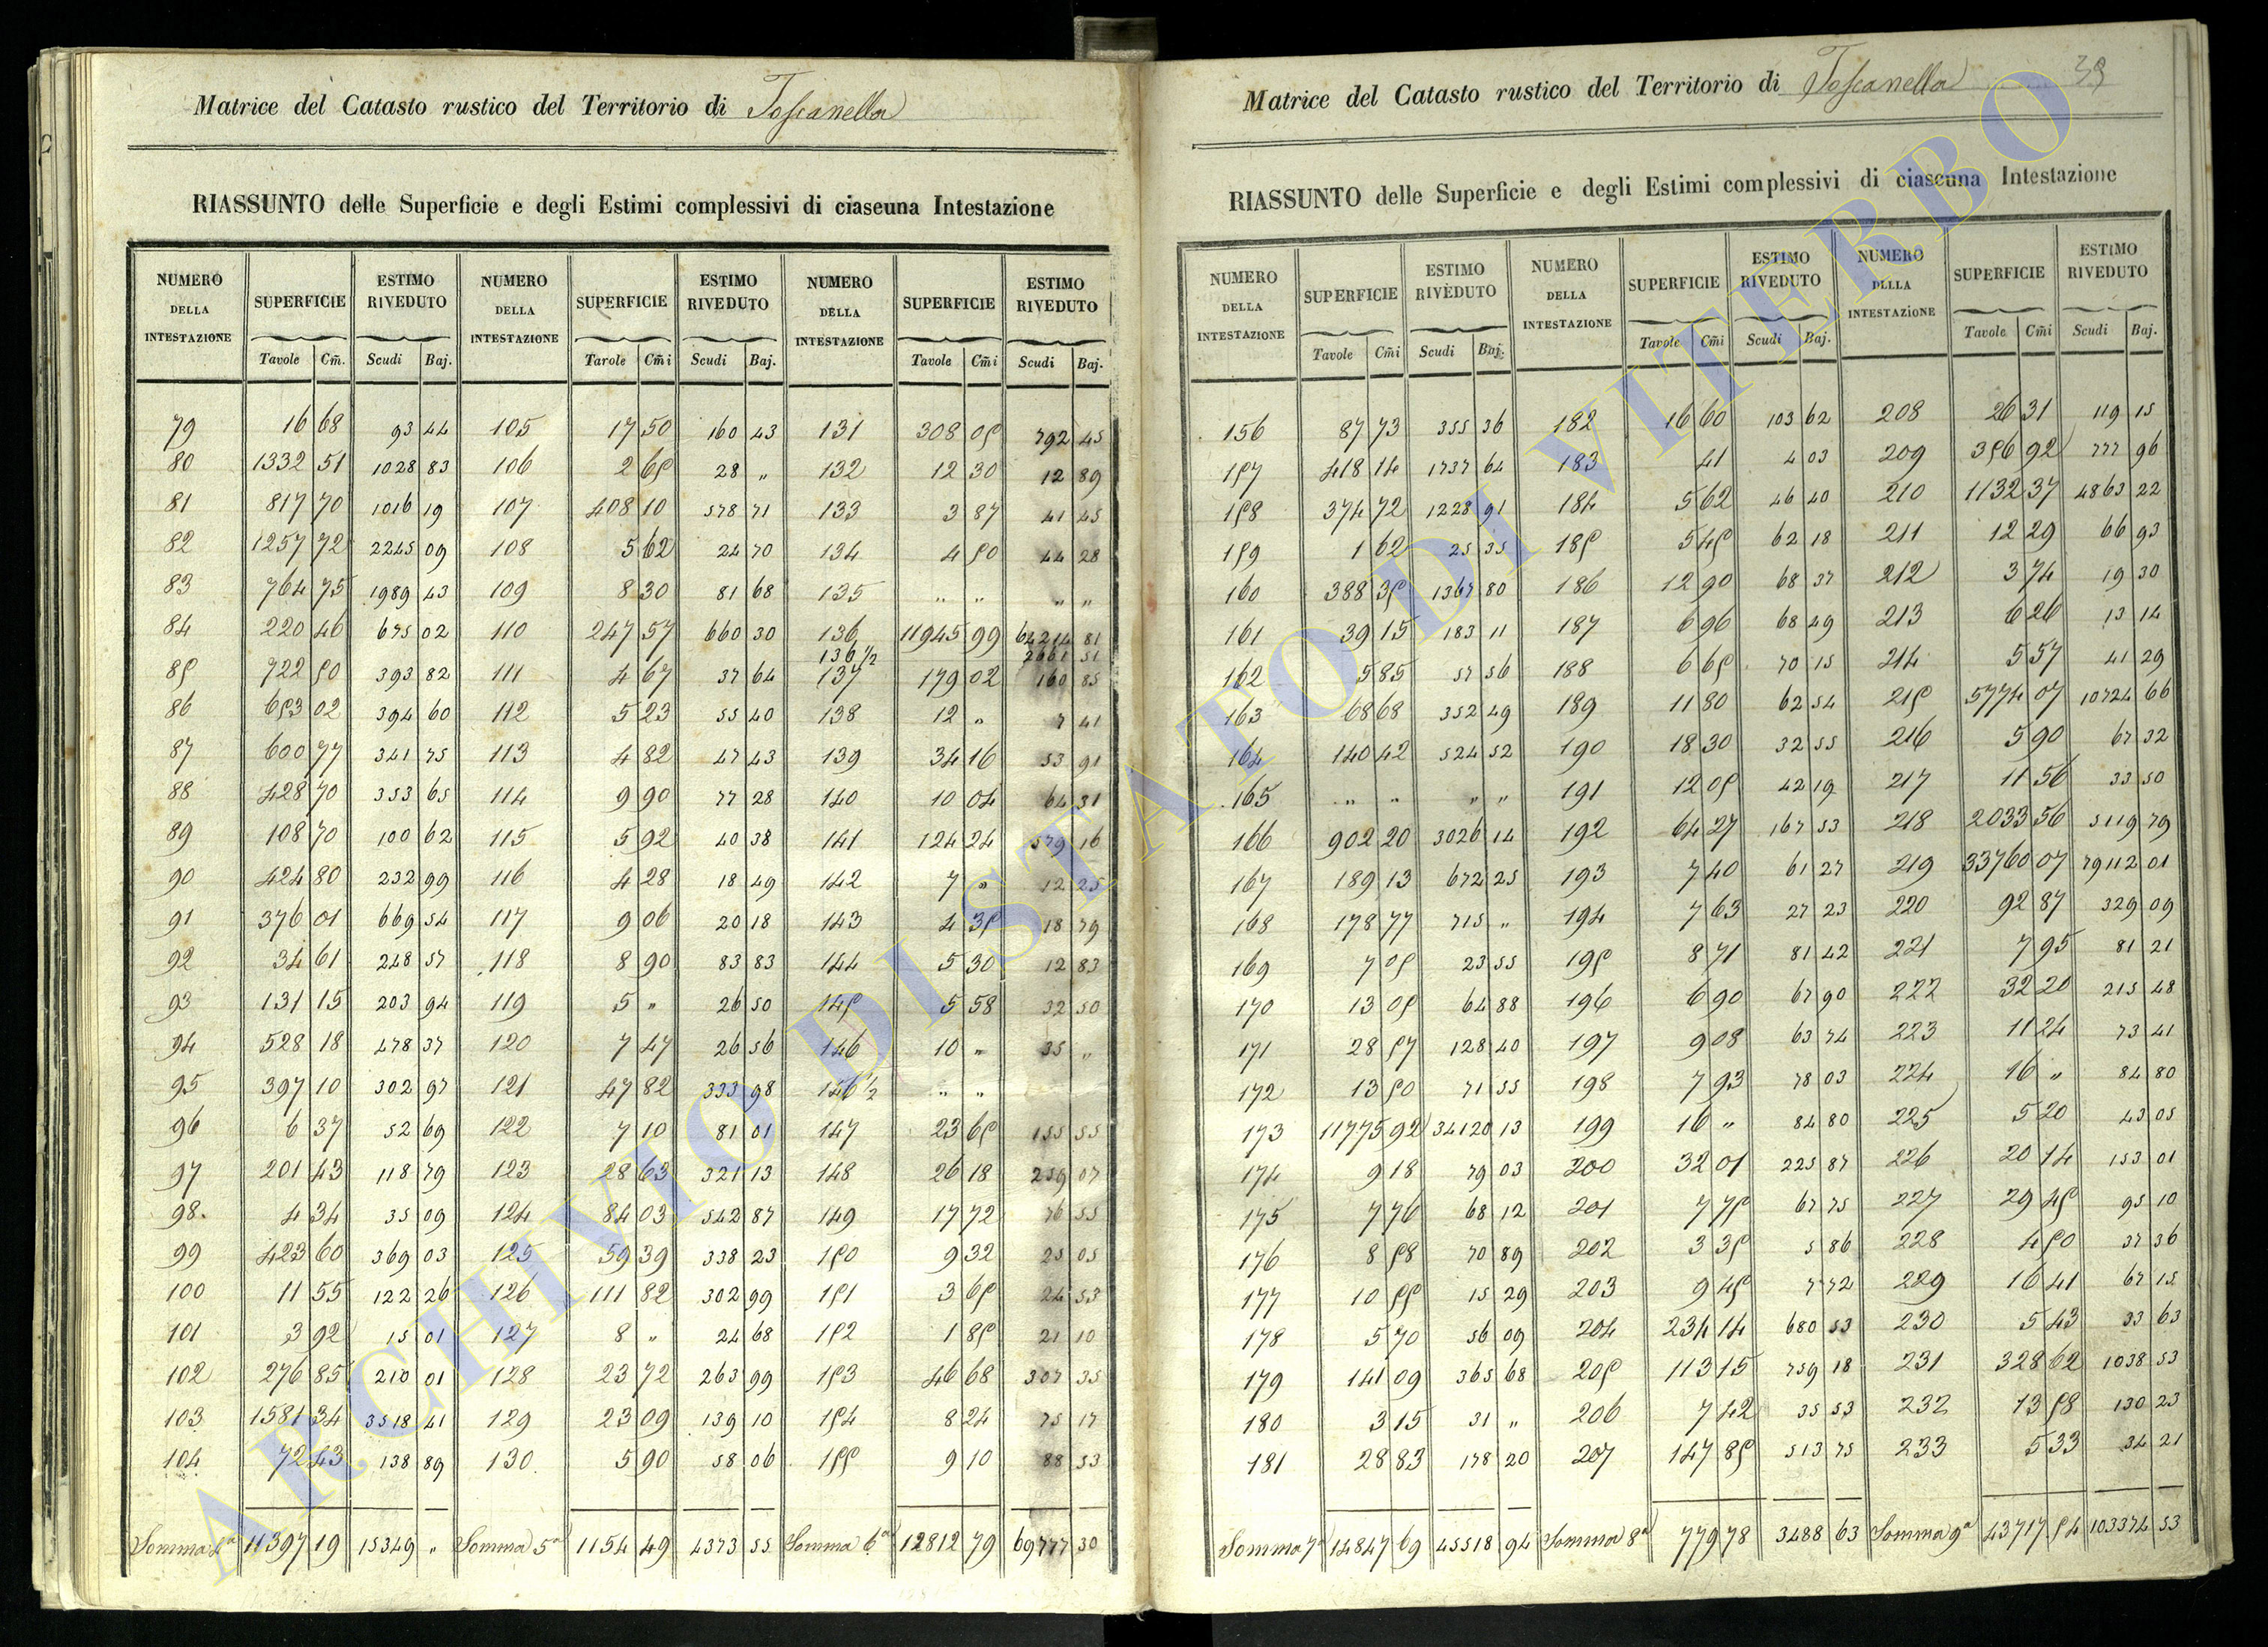 Matrice del Catasto rustico del Territorio di Toscanella
RIASSUNTO delle Superficie e degli Estimi complessivi di ciascuna Intestazione
NUMERO DELLA INTESTAZIONE SUPERFICIE ESTIMO RIVEDUTO NUMERO DELLA INTESTAZIONE SUPERFICIE ESTIMO RIVEDUTO NUMERO DELLA INTESTAZIONE SUPERFICIE ESTIMO RIVEDUTO
Tavole Cm̃. Scudi Baj. Tavole Cm̃i Scudi Baj. Tavole Cm̃i Scudi Baj.
79 16 68 93 44 105 17 50 160 43 131 308 05 792 45
80 1332 51 1028 83 106 2 65 28 „ 132 12 30 12 89
81 817 70 1016 19 107 408 10 578 71 133 3 87 41 45
82 1257 72 2245 09 108 5 62 24 70 134 4 50 44 28
83 764 75 1989 43 109 8 30 81 68 135 „ „ „ „
84 220 46 675 02 110 247 57 660 30 136 11945 99 64214 81
136 1/2 2661 51
85 722 50 393 82 111 4 67 37 64 137 179 02 160 85
86 653 02 394 60 112 5 23 55 40 138 12 „ 7 41
87 600 77 341 75 113 4 82 47 43 139 34 16 53 91
88 428 70 353 65 114 9 90 77 28 140 10 04 64 31
89 108 70 100 62 115 5 92 40 38 141 124 24 579 16
90 424 80 232 99 116 4 28 18 49 142 7 „ 12 25
91 376 01 669 54 117 9 06 20 18 143 4 35 18 79
92 34 61 248 57 118 8 90 83 83 144 5 30 12 83
93 131 15 203 94 119 5 „ 26 50 145 5 58 32 50
94 528 18 478 37 120 7 47 26 56 146 10 „ 35 „
95 397 10 302 97 121 47 82 333 98 146 1/2 „ „
96 6 37 52 69 122 7 10 81 01 147 23 65 155 55
97 201 43 118 79 123 28 63 321 13 148 26 18 259 07
98. 4 34 35 09 124 84 03 542 87 149 17 72 76 55
99 423 60 369 03 125 59 39 338 23 150 9 32 25 05
100 11 55 122 26 126 111 82 302 99 151 3 65 24 53
101 3 92 15 01 127 8 „ 24 68 152 1 85 21 10
102 276 85 210 01 128 23 72 263 99 153 46 68 307 35
103 1581 34 3518 41 129 23 09 139 10 154 8 24 75 17
104 72 43 138 89 130 5 90 58 06 155 9 10 88 53
Somma 4ª 11397 19 15349 „ Somma 5ª 1154 49 4373 55 Somma 6ª 12812 79 69777 30
39
Matrice del Catasto rustico del Territorio di Toscanella
RIASSUNTO delle Superficie e degli Estimi complessivi di ciascuna Intestazione
NUMERO DELLA INTESTAZIONE SUPERFICIE ESTIMO RIVEDUTO NUMERO DELLA INTESTAZIONE SUPERFICIE ESTIMO RIVEDUTO NUMERO DELLA INTESTAZIONE SUPERFICIE ESTIMO RIVEDUTO
Tavole Cm̃i Scudi Baj. Tavole Cm̃i Scudi Baj. Tavole Cm̃i Scudi Baj.
156 87 73 355 36 182 16 60 103 62 208 26 31 119 15
157 418 14 1737 64 183 41 4 03 209 356 92 777 96
158 374 72 1228 91 184 5 62 46 40 210 1132 37 4863 22
159 1 62 25 35 185 5 45 62 18 211 12 29 66 93
160 388 35 1367 80 186 12 90 68 37 212 3 74 19 30
161 39 15 183 11 187 6 96 68 49 213 6 26 13 14
162 5 85 57 56 188 6 65 70 15 214 5 57 41 29
163 68 68 352 49 189 11 80 62 54 215 5774 07 10724 66
164 140 42 524 52 190 18 30 32 55 216 5 90 67 32
165 „ „ „ „ 191 12 05 42 19 217 11 56 33 50
166 902 20 3026 14 192 64 27 167 53 218 2033 56 5119 79
167 189 13 672 25 193 7 40 61 27 219 33760 07 79112 01
168 178 77 715 „ 194 7 63 27 23 220 92 87 329 09
169 7 05 23 55 195 8 71 81 42 221 7 95 81 21
170 13 05 64 88 196 6 90 67 90 222 32 20 215 48
171 28 57 128 40 197 9 08 63 74 223 11 24 73 41
172 13 50 71 55 198 7 93 78 03 224 16 „ 84 80
173 11775 92 34120 13 199 16 „ 84 80 225 5 20 43 05
174 9 18 79 03 200 32 01 225 87 226 20 14 153 01
175 7 76 68 12 201 7 75 67 75 227 29 45 95 10
176 8 58 70 89 202 3 35 5 86 228 4 50 37 36
177 10 55 15 29 203 9 45 7 72 229 16 41 67 15
178 5 70 56 09 204 234 14 680 53 230 5 43 33 63
179 141 09 365 68 205 113 15 759 18 231 328 62 1038 53
180 3 15 31 „ 206 7 42 35 53 232 13 58 130 23
181 28 83 178 20 207 147 85 513 75 233 5 33 34 21
Somma 7ª 14847 69 45518 94 Somma 8ª 779 78 3488 63 Somma 9ª 43717 54 103374 53
ARCHIVIO DI STATO DI VITERBO